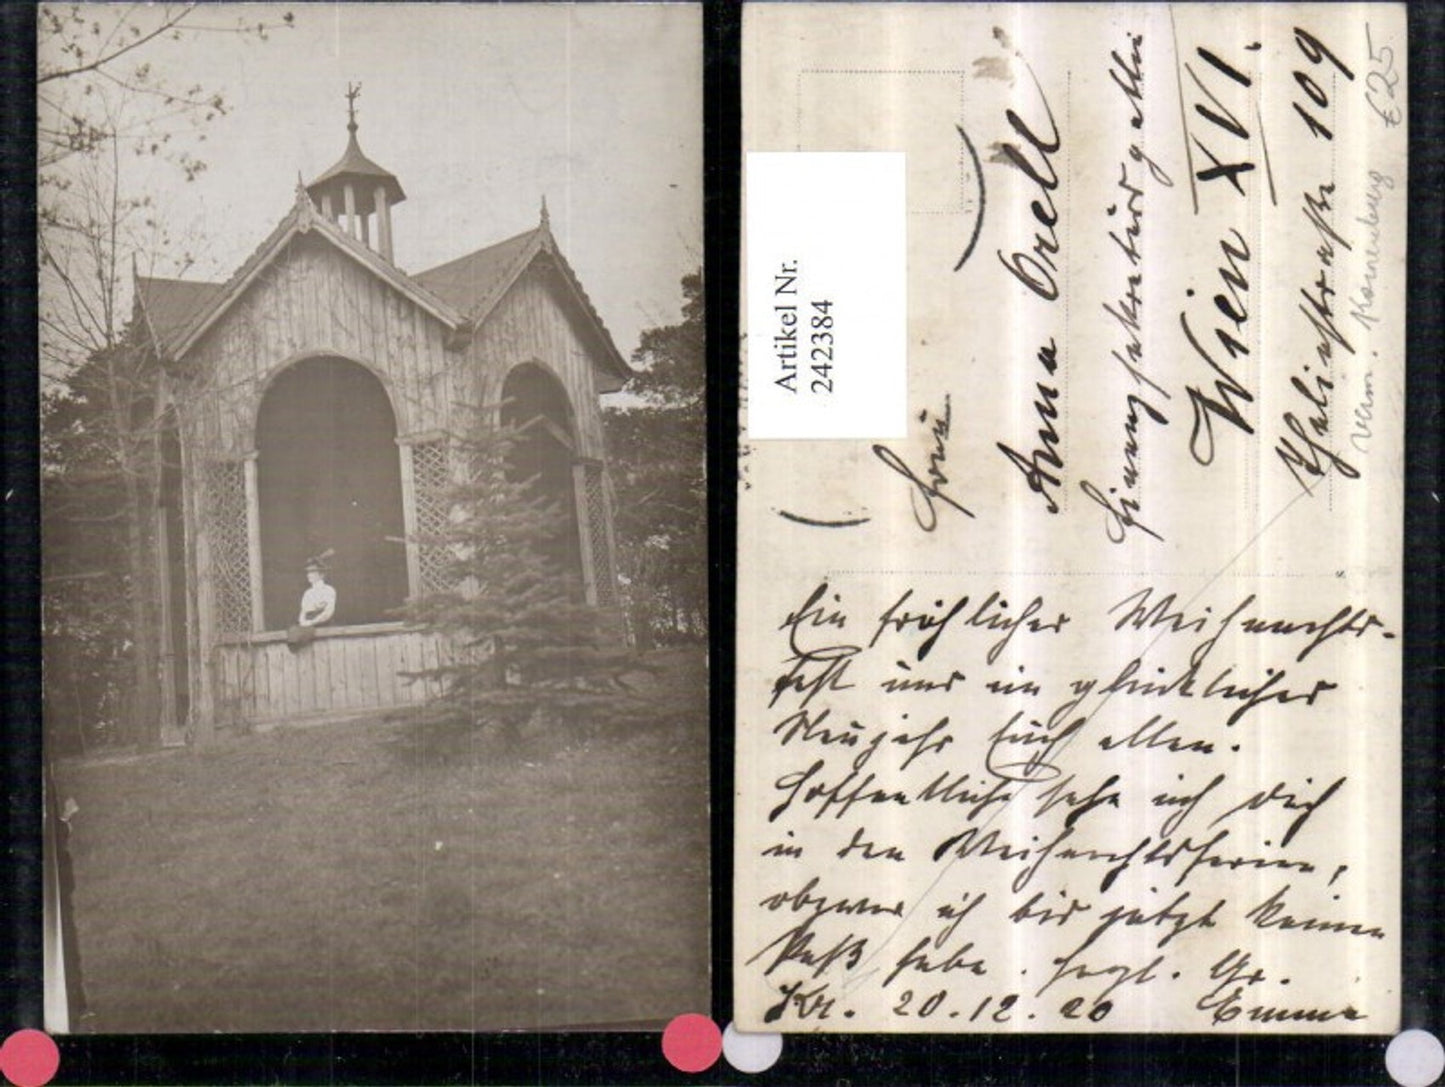 Artikel Nr.
242384
Frau
Anna Orell
Finanzsekretärsgattin
Wien XVI.
Thaliastraße 109
Korneuburg
€25
Ein fröhliches Weihnachts-
fest und ein glückliches
Neujahr Euch allen.
Hoffentlich sehe ich Dich
in den Weihnachtsferien,
obzwar ich bis jetzt keinen
Paß habe. Herzl. Gr.
Kr. 20.12.20 Emma